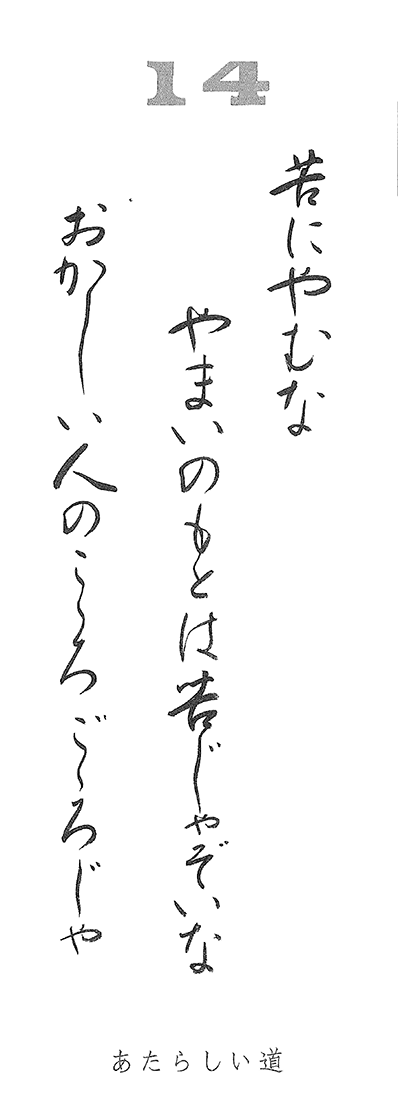 14
苦にやむな
やまいのもとは苦じゃぞいな
おかしい人のこゝろごゝろじゃ
あたらしい道